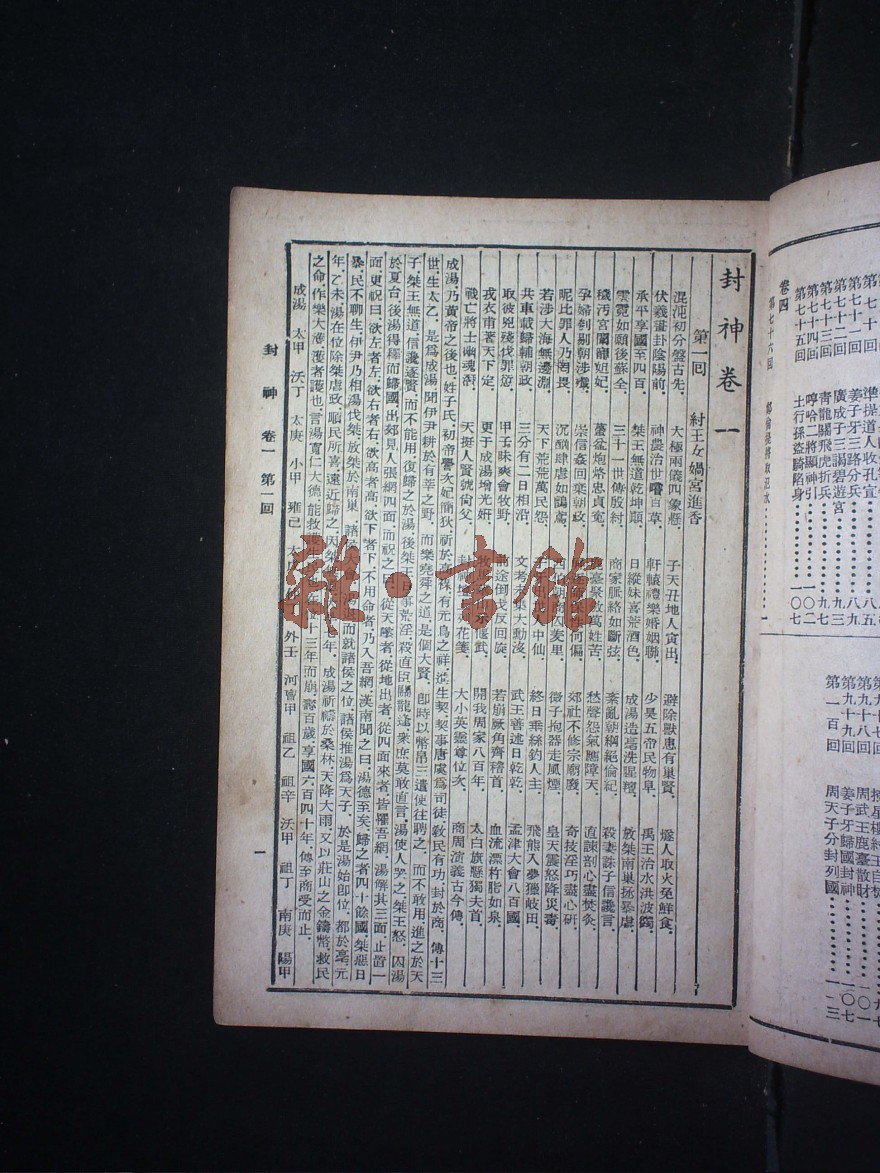 第七十回 準提道人收孔宣 八五
第七十一回 姜子牙三路分兵 八九
第七十二回 廣成子三謁碧遊宮 九三
第七十三回 青龍關飛虎折兵 九七
第七十四回 哼哈二將顯神引 一〇二
第七十五回 土行孫盜騎陷身 一〇七
卷四
第七十六回 鄭倫捉將取汜水 一
第九十八回 周武王鹿臺散財
第九十九回 姜子牙歸國封神
第一百回 周天子分封列國 一一三
封神卷一
第一回 紂王女媧宮進香
混沌初分盤古先。 太極兩儀四象懸。 子天丑地人寅出。 避除獸患有巢賢。 燧人取火免鮮食。
伏羲畫卦陰陽前。 神農治世嚐百草。 軒轅禮樂婚姻聯。 少昊五帝民物阜。 禹王治水洪波蠲。
承平享國至四百。 桀王無道乾坤顛。 日縱妹喜荒酒色。 成湯造亳洗腥羶。 放桀南巢拯暴虐。
雲霓如願後蘇全。 三十一世傳殷紂。 商家脈絡如斷弦。 紊亂朝綱絕倫紀。 殺妻誅子信讒言。
穢污宮闈寵妲己。 蠆盆炮烙忠貞冤。 臺聚斂萬姓苦。 愁聲怨氣應障天。 直諫剖心盡焚灸。
孕婦刳剔朝涉殲。 崇信姦回棄朝政。 何偏。 郊社不修宗廟廢。 奇技淫巧盡心研。
昵比罪人乃罔畏。 沉酗肆虐如鸇鳶。 羑里。 微子抱器走風煙。 皇天震怒降災毒。
若涉大海無邊淵。 天下荒荒萬民怨。 中仙。 終日垂絲釣人主。 飛熊入夢獵岐田。
共車載歸輔朝政。 三分有二日相沿。 文考未集大勳沒。 武王善述日乾乾。 孟津大會八百國。
取彼兇殘伐罪愆。 甲子昧爽會牧野。 前途倒戈反回旋。 若崩厥角齊稽首。 血流漂杵脂如泉。
戎衣甫著天下定。 更于成湯增光妍。 偃武。 開我周家八百年。 太白旗懸獨夫首。
戰亡將士幽魂潛。 天挺人賢號尚父。 封神 花箋。 大小英靈尊位次。 商周演義古今傳。
成湯乃黃帝之後也、姓子氏、初帝嚳次妃簡狄、祈於高禖、有元鳥之祥、遂生契、契事唐虞爲司徒、敎民有功、封於商、傳十三
世、生太乙、是爲成湯、聞伊尹耕於有莘之野、而樂堯舜之道、是個大賢、卽時以幣帛三遣使往聘之、而不敢用、進之於天
子、桀王無道、信讒逐賢、而不能用、復歸之於湯、後桀王 事荒淫、殺直臣關龍逄、衆庶莫敢直言、湯使人哭之、桀王怒、囚湯
於夏台、後湯得釋而歸國、出郊見人張網四面、而祝之曰、從天墜者、從地出者、從四面來者、皆罹吾網、湯解其三面、止置一
面、更祝曰、欲左者左、欲右者右、欲高者高、欲下者下、不用命者乃入吾網、漢南聞之曰、湯德至矣、歸之者四十餘國、桀惡日
暴、民不聊生、伊尹乃相湯伐桀、放桀於南巢、諸侯大 而就諸侯之位、諸侯推湯爲天子、於是湯始卽位、都於亳、元
年、乙未、湯在位除桀虐政、順民所喜、遠近歸之、因桀 年、成湯祈禱於桑林、天降大雨、又以莊山之金鑄幣、救民
之命、作樂大濩、濩者護也、言湯寬仁大德、能救護生 十三年而崩、壽百歲、享國六百四十年、傳至商受而止、
成湯 太甲 沃丁 太庚 小甲 雍己 太戊 外壬 河亶甲 祖乙 祖辛 沃甲 祖丁 南庚 陽甲
封神 卷一 第一回 一
雜·書館